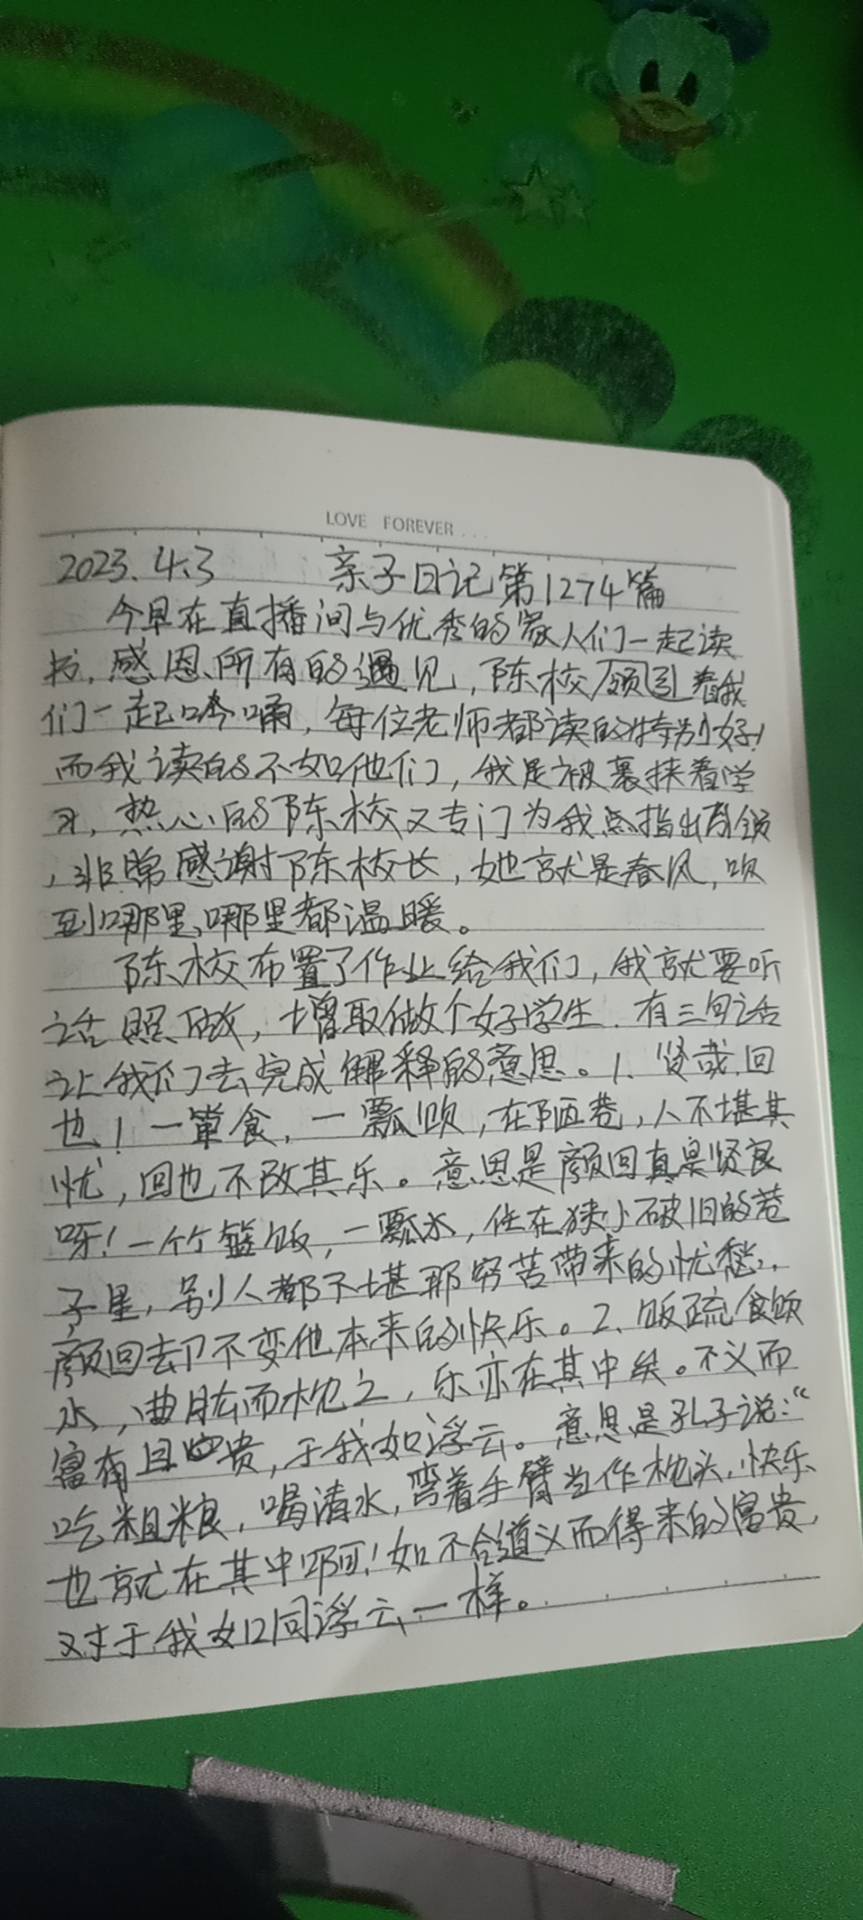 LOVE FOREVER...
2023.4.3 亲子日记第1274篇
今早在直播间与优秀的家人们一起读
书,感恩所有的遇见,陈校领引着我
们一起吟诵,每位老师都读的特别好!
而我读的不如他们,我是被裹挟着学
习,热心的陈校又专门为我点指出
,非常感谢陈校长,她就是春风,吹
到哪里,哪里都温暖。
陈校布置了作业给我们,我就要听
话照做,增取做个好学生.有三句话
让我们去完成解释的意思。1、贤哉,回
也!一箪食,一瓢饮,在陋巷,人不堪其
忧,回也不改其乐。意思是颜回真是贤良
呀!一个篮饭,一瓢水,住在狭小破旧的巷
子里,别人都不堪那穷苦带来的忧愁,
颜回却不变他本来的快乐。2、饭疏食饮
水,曲肱而枕之,乐亦在其中矣。不义而
富有且贵,于我如浮云。意思是孔子说:“
吃粗粮,喝清水,弯着手臂当作枕头,快乐
也就在其中啊!如不合道义而得来的富贵,
对于我如同浮云一样。